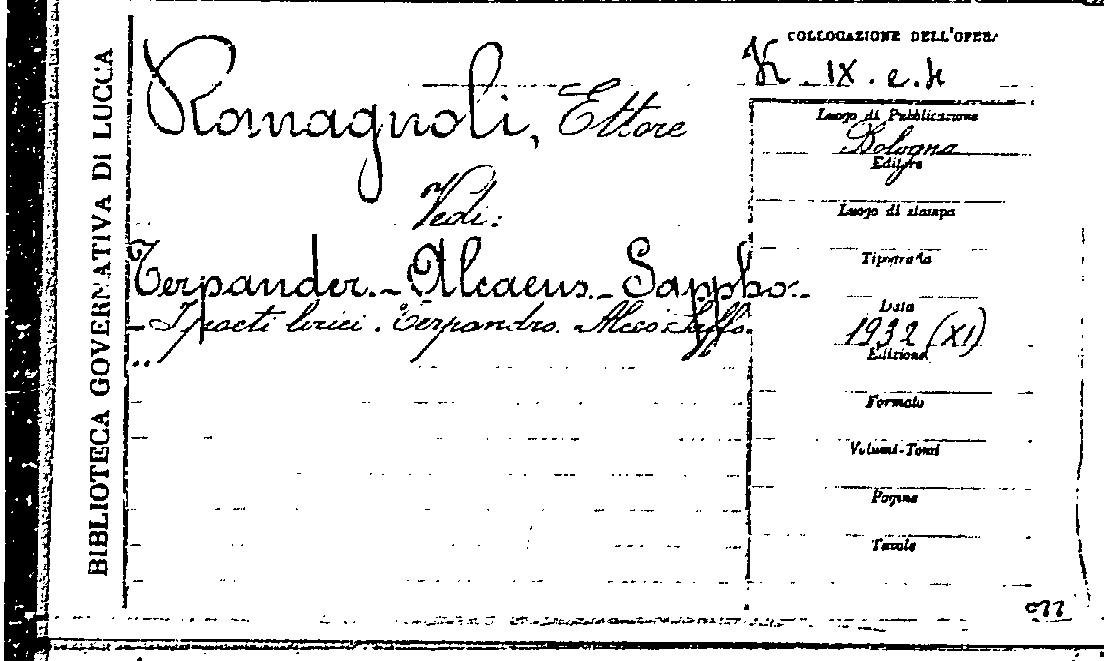 BIBLIOTECA GOVERNATIVA DI LUCCA
Romagnoli, Ettore
Vedi:
Terpander. - Alcaeus. - Sappho. -
- I poeti lirici. Terpandro. Alceo. Saffo.
COLLOCAZIONE DELL'OPERA
IX. e. 4
Luogo di Pubblicazione
Bologna
Editore
Luogo di stampa
Tipografia
Data
1932 (XI)
Edizione
Formato
Volumi-Tomi
Pagine
Tavole